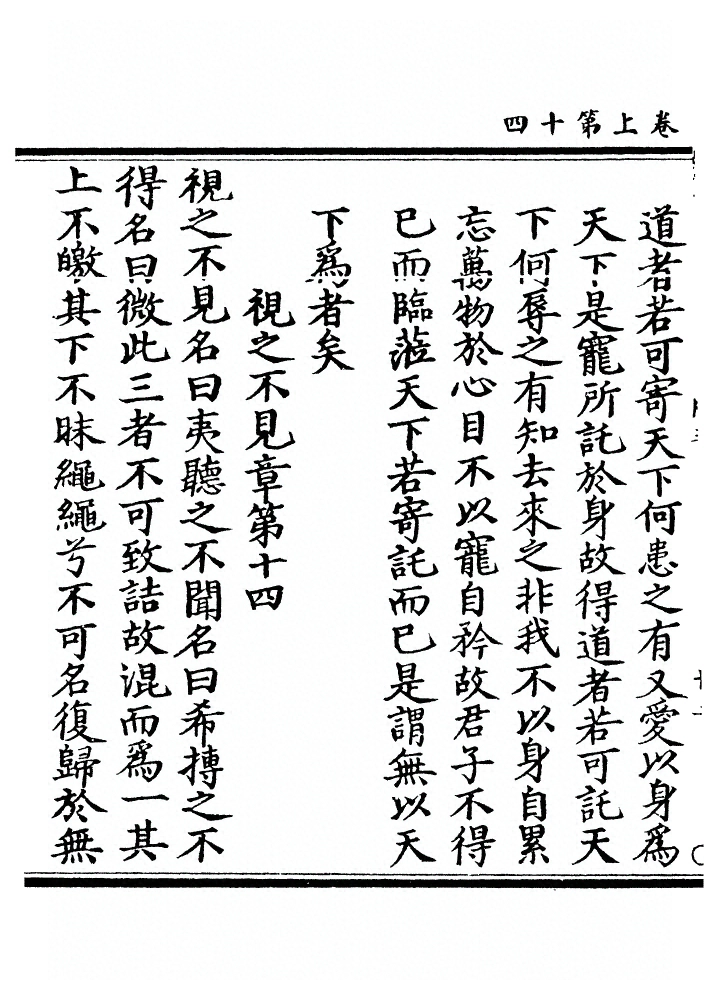 卷上第十四
道者若可寄天下何患之有又愛以身爲
天下是寵所託於身故得道者若可託天
下何辱之有知去來之非我不以身自累
忘萬物於心目不以寵自矜故君子不得
已而臨蒞天下若寄託而已是謂無以天
下爲者矣
視之不見章第十四
視之不見名曰夷聽之不聞名曰希摶之不
得名曰微此三者不可致詰故混而爲一其
上不皦其下不昧繩繩兮不可名復歸於無